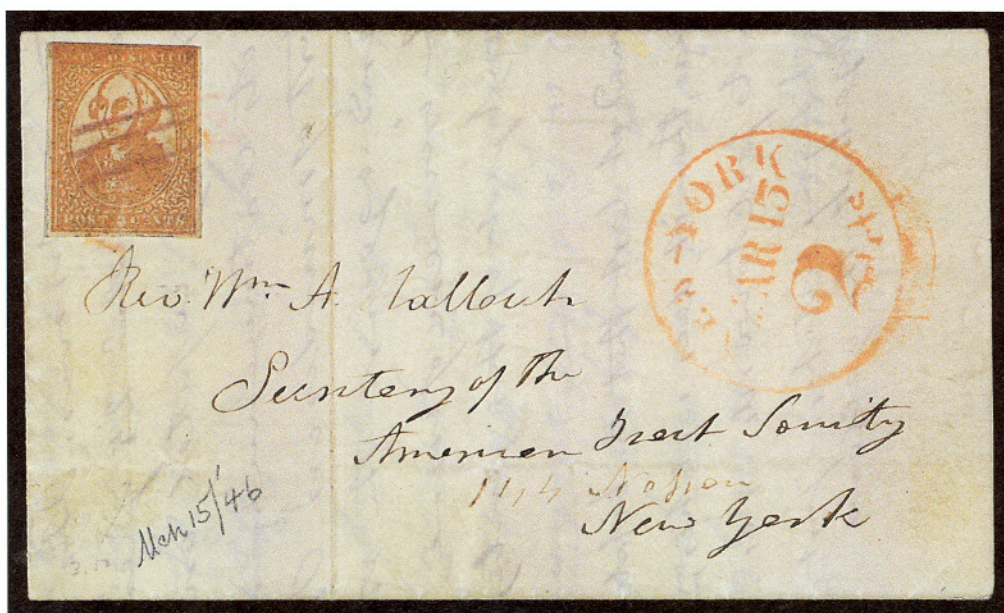 POST 2 CENTS
NEW YORK
MAR 15
2 cts
Rev. Wm A. Hallock
Secretary of the
American Tract Society
144 Nassau
New York
Mch 15/46